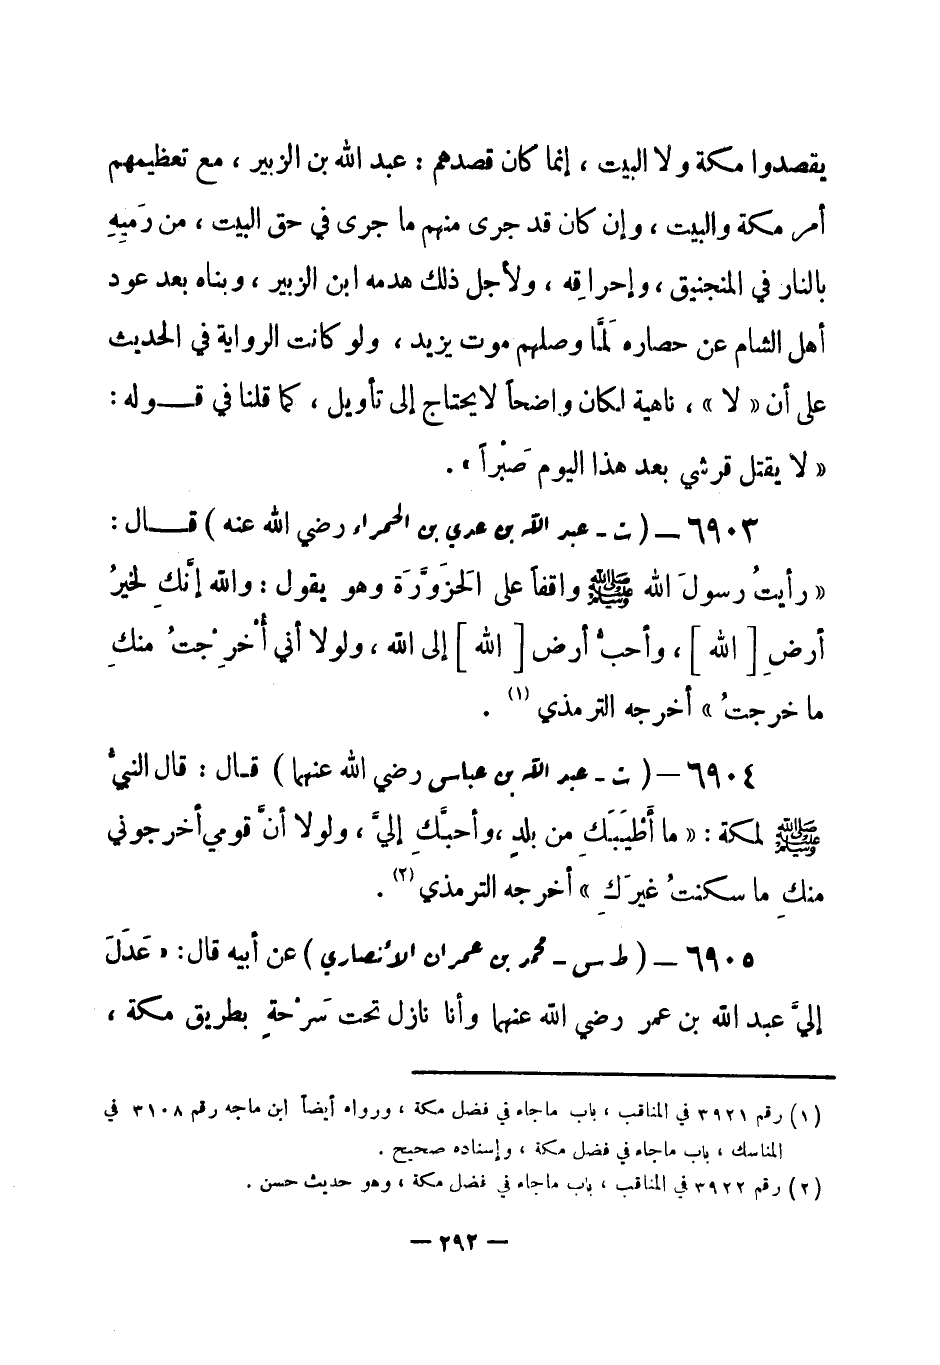 يقصدوا مكة ولا البيت ، إنما كان قصدهم : عبد الله بن الزبير ، مع تعظيمهم
أمر مكة والبيت ، وإن كان قد جرى منهم ما جرى في حق البيت ، من رَميِهِ
بالنار في المنجنيق ، وإحراقِه ، ولأجل ذلك هدمه ابن الزبير ، وبناه بعد عود
أهل الشام عن حصاره لَمَّا وصلهم موت يزيد ، ولو كانت الرواية في الحديث
على أن « لا » ، ناهية لكان واضحاً لا يحتاج إلى تأويل ، كما قلنا في قـــوله :
« لا يقتل قرشي بعد هذا اليوم صَبْراً » .
٦٩٠٣ – ( ت - عبد الله بن عدي بن الحمراء رضي الله عنه ) قـــال :
« رأيتُ رسولَ الله ﷺ واقفاً على الَحزَوَّرَة وهو يقول : والله إنَّكِ لخيرُ
أرضِ [ الله ] ، وأحبُّ أرض [ الله ] إلى الله ، ولولا أني أُخْرِجْتُ منكِ
ما خرجتُ » أخرجه الترمذي (١) .
٦٩٠٤ – ( ت - عبد الله بن عباس رضي الله عنهما ) قـال : قال النبيُّ
ﷺ لمكة : « ما أَطْيَبَكِ من بلدٍ ، وأحبَّكِ إليَّ ، ولولا أنَّ قومي أخرجوني
منكِ ما سكنتُ غيرَكِ » أخرجه الترمذي (٢) .
٦٩٠٥ – ( ط س - محمد بن عمران الأنصاري ) عن أبيه قال : « عَدَلَ
إليَّ عبد الله بن عمر رضي الله عنهما وأنا نازل تحت سَرْحةٍ بطريق مكة ،
(١) رقم ٣٩٢١ في المناقب ، باب ماجاء في فضل مكة ، ورواه أيضاً ابن ماجه رقم ٣١٠٨ في
المناسك ، باب ماجاء في فضل مكة ، وإسناده صحيح .
(٢) رقم ٣٩٢٢ في المناقب ، باب ماجاء في فضل مكة ، وهو حديث حسن .
– ٢٩٢ –